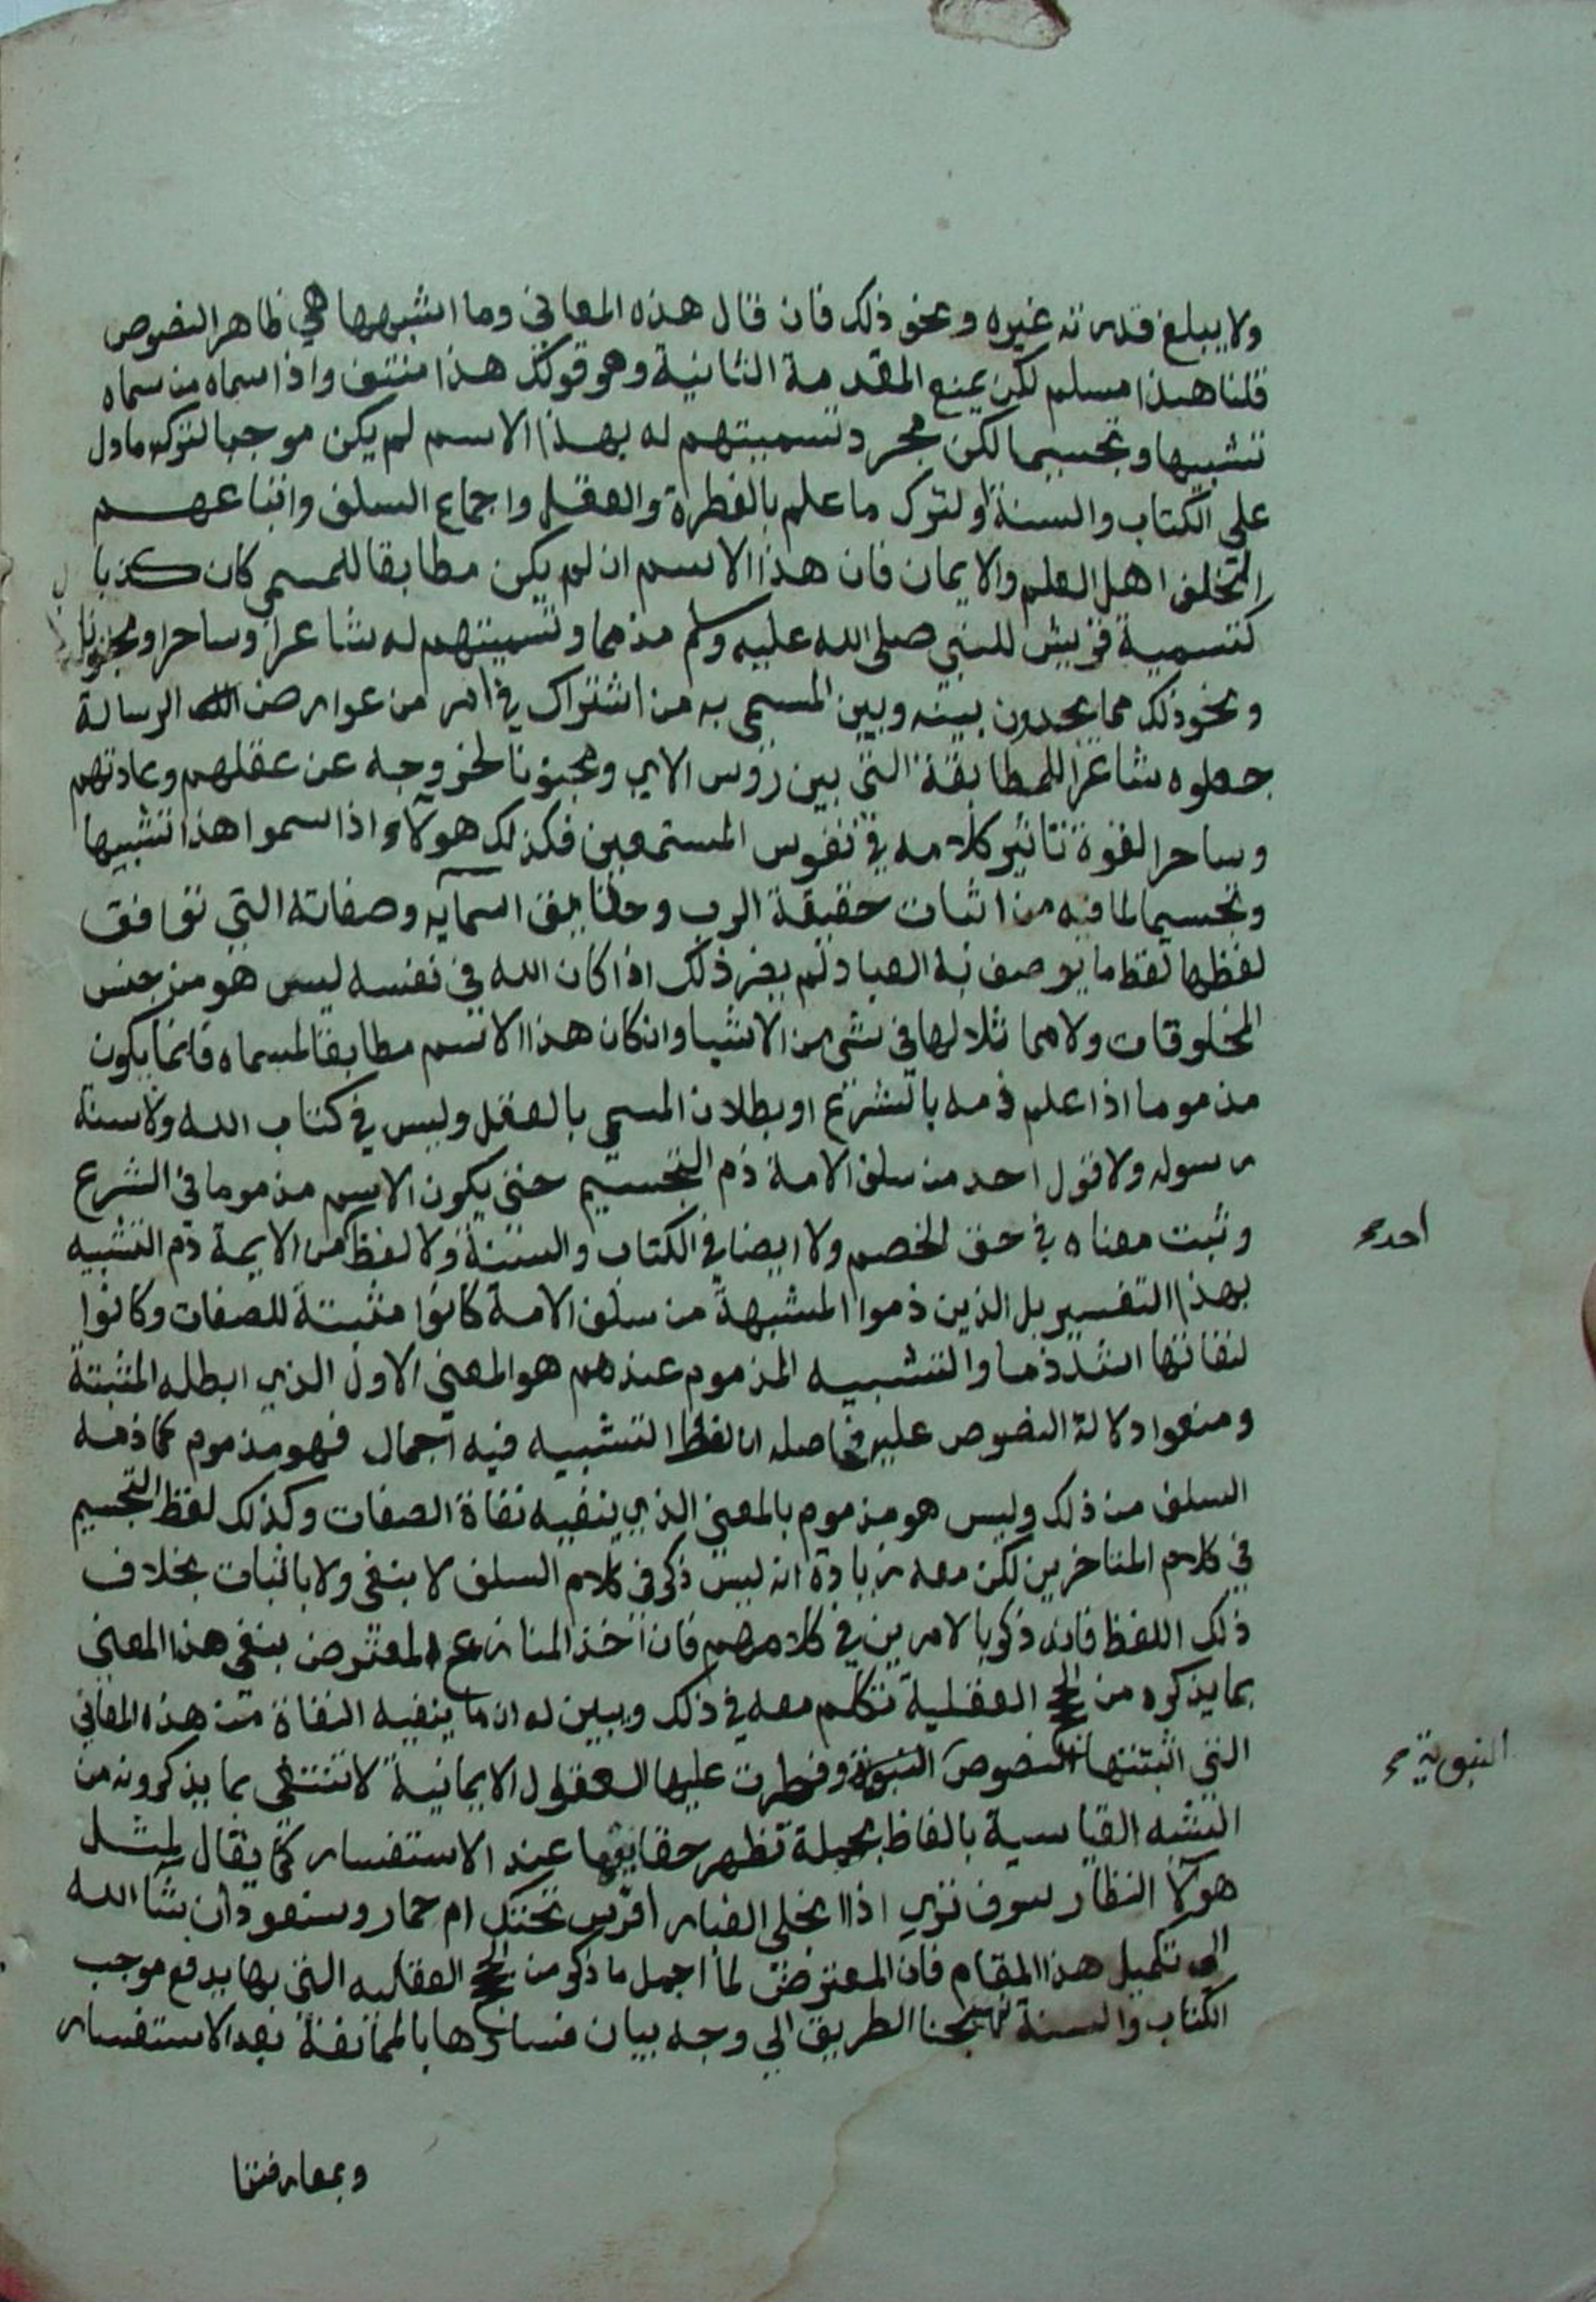 ولا يبلغ قدرته غيره ونحو ذلك فان قال هذه المعاني وما اشبهها هي ظاهر النصوص
قلنا هذا مسلم لكن يمنع المقدمة الثانية وهو قولك هذا منتف واذا سماه من سماه
تشبيها وتجسيما لكن مجرد تسميتهم له بهذا الاسم لم يكن موجبا لترك ما دل
على الكتاب والسنة ولترك ما علم بالفطرة والعقل واجماع السلف واتباعهم
اهل العلم والايمان فان هذا الاسم ان لم يكن مطابقا للمسمى كان كذبا
كتسمية قريش للنبي صلى الله عليه وسلم مذمما وتسميتهم له شاعرا وساحرا ومجنونا
ونحو ذلك مما يجدون بينه وبين المسمى به من اشتراك في امر من عوارض الرسالة
جعلوه شاعرا للمطابقة التي بين رؤس الاي ومجنونا لخروجه عن عقلهم وعادتهم
وساحرا لقوة تاثير كلامه في نفوس المستمعين فكذلك هولآء اذا سموا هذا تشبيها
وتجسيما لما فيه من اثبات حقيقة الرب وحقايق اسمآيه وصفاته التي توافق
لفظها لفظ ما يوصف به العباد لم يضر ذلك اذا كان الله في نفسه ليس هو من جنس
المخلوقات ولا مماثلا لها في شي من الاشيا وان كان هذا الاسم مطابقا لمسماه فانما يكون
مذموما اذا علم ذمه بالشرع او بطلان المسمى بالعقل وليس في كتاب الله ولا سنة
رسوله ولا قول احد من سلف الامة ذم التجسيم حتى يكون الاسم مذموما في الشرع
وثبت معناه في حق الخصم ولا ايضا في الكتاب والسنة ولا لفظ من الايمة ذم التشبيه
احد صح
بهذا التفسير بل الذين ذموا المشبهة من سلف الامة كانوا مثبتة للصفات وكانوا
لنفاتها اشد ذما والتشبيه المذموم عندهم هو المعنى الاول الذي ابطله المثبتة
ومنعوا دلالة النصوص عليه فحاصله ان لفظ التشبيه فيه اجمال فهو مذموم كما ذمه
السلف من ذلك وليس هو مذموم بالمعنى الذي ينفيه نفاة الصفات وكذلك لفظ التجسيم
في كلام المتاخرين لكن معه زيادة انه ليس ذكر في كلام السلف لا بنفي ولا باثبات بخلاف
ذلك اللفظ فانه ذكر بالامرين في كلامهم فان اخذ المنازع المعترض ينفي هذا المعنى
بما يذكره من الحجج العقلية نتكلم معه في ذلك ويبين له ان ما ينفيه النفاة من هذه المعاني
التي اثبتتها النصوص النبوية وفطرت عليها العقول الايمانية لا تنتفي بما يذكرونه من
النبوية صح
الشبه القياسية بالفاظ مجملة تظهر حقايقها عند الاستفسار كما يقال لمثل
هولآ النظار سوف ترى اذا انجلى الغبار افرس تحتك ام حمار وسنعود ان شا الله
الى تكميل هذا المقام فان المعترض لما اجمل ما ذكر من الحجج العقليه التي بها يدفع موجب
الكتاب والسنة نهجنا الطريق الى وجه بيان فسادها بالممانعة بعد الاستفسار
وبمعارضتنا